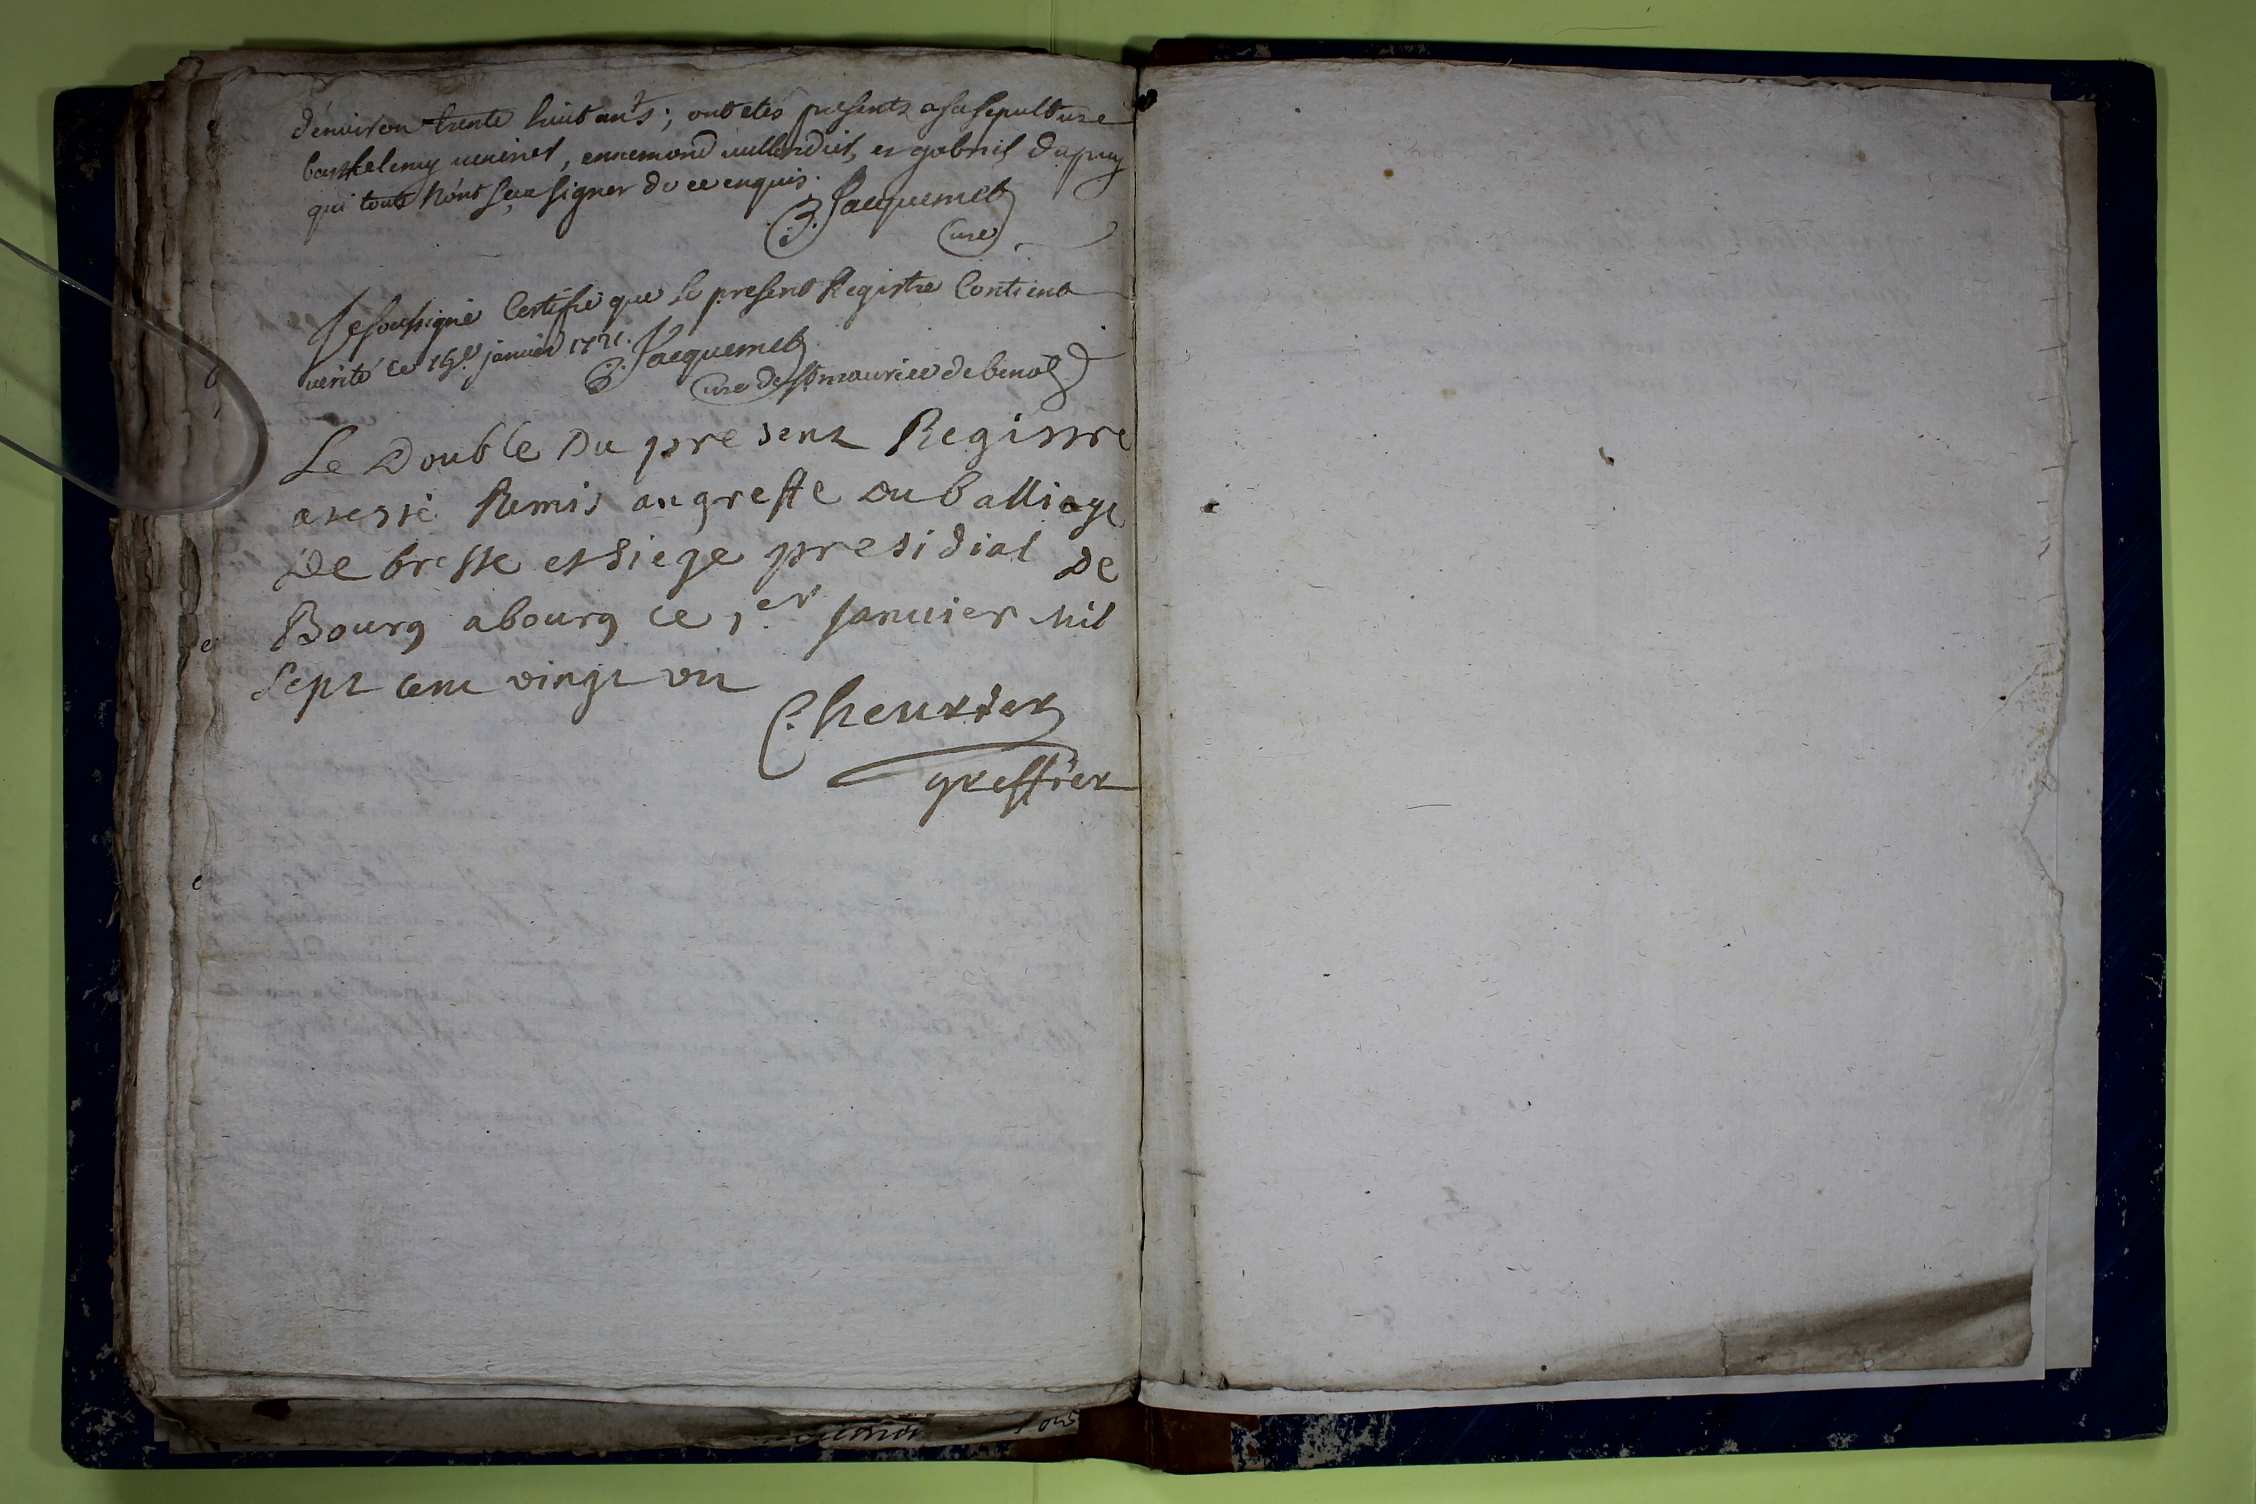 d'environ trente huit ans; ont etés presents a sa sepulture
barthelemy, ennemond et gabriel dupuy
qui touts n'ont sceu signer de ce enquis.
B. Jacquemet
curé
Je soussigné Certifie que le present Registre Contient
verité ce janvier 1721. B. Jacquemet
curé de st maurice de benost
Le Double Du present Registre
a este Remis au greffe du balliage
De bresse et siege presidial De
Bourg a bourg ce 1.er Janvier Mil
Sept cent vingt un
Cheurier
greffier